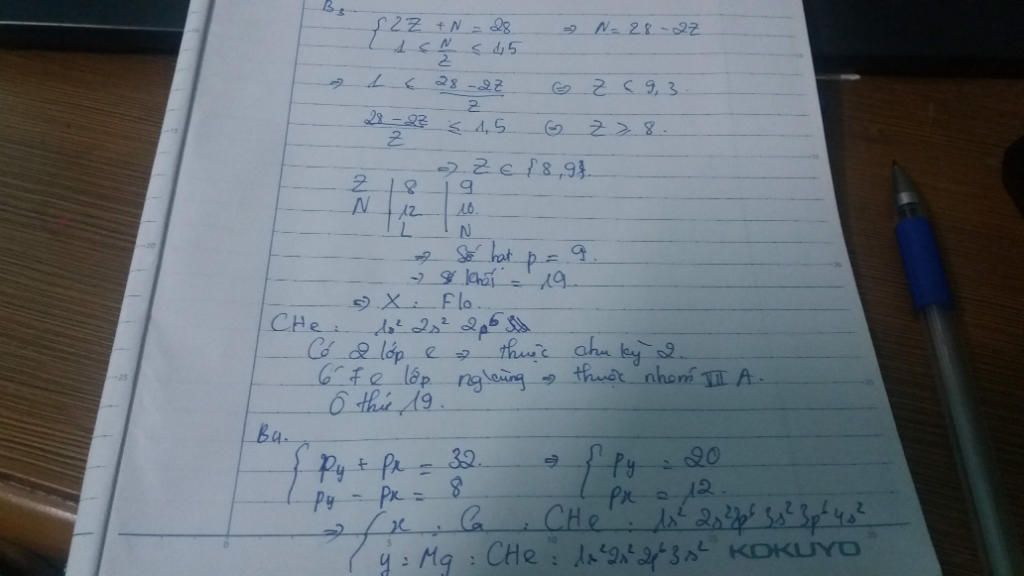 B3.
{ 2Z + N = 28 ⇒ N = 28 - 2Z
1 ≤ N/Z ≤ 1,5
⇒ 1 ≤ (28 - 2Z)/Z ⇔ Z < 9,3.
(28 - 2Z)/Z ≤ 1,5 ⇔ Z ≥ 8.
⇒ Z ∈ {8,9}.
Z | 8 | 9
N | 12 | 10.
L | N
⇒ Số hạt p = 9.
⇒ Số khối = 19.
⇒ X : Flo.
CHe : 1s² 2s² 2p⁵
Có 2 lớp e ⇒ thuộc chu kỳ 2.
Có 7 e lớp ngcùng ⇒ thuộc nhóm VII A.
Ô thứ 19.
B4.
{ py + px = 32. ⇒ { py = 20
py - px = 8 px = 12.
⇒ { x : Ca : CHe : 1s² 2s² 2p⁶ 3s² 3p⁶ 4s²
y : Mg : CHe : 1s² 2s² 2p⁶ 3s²
KOKUYO